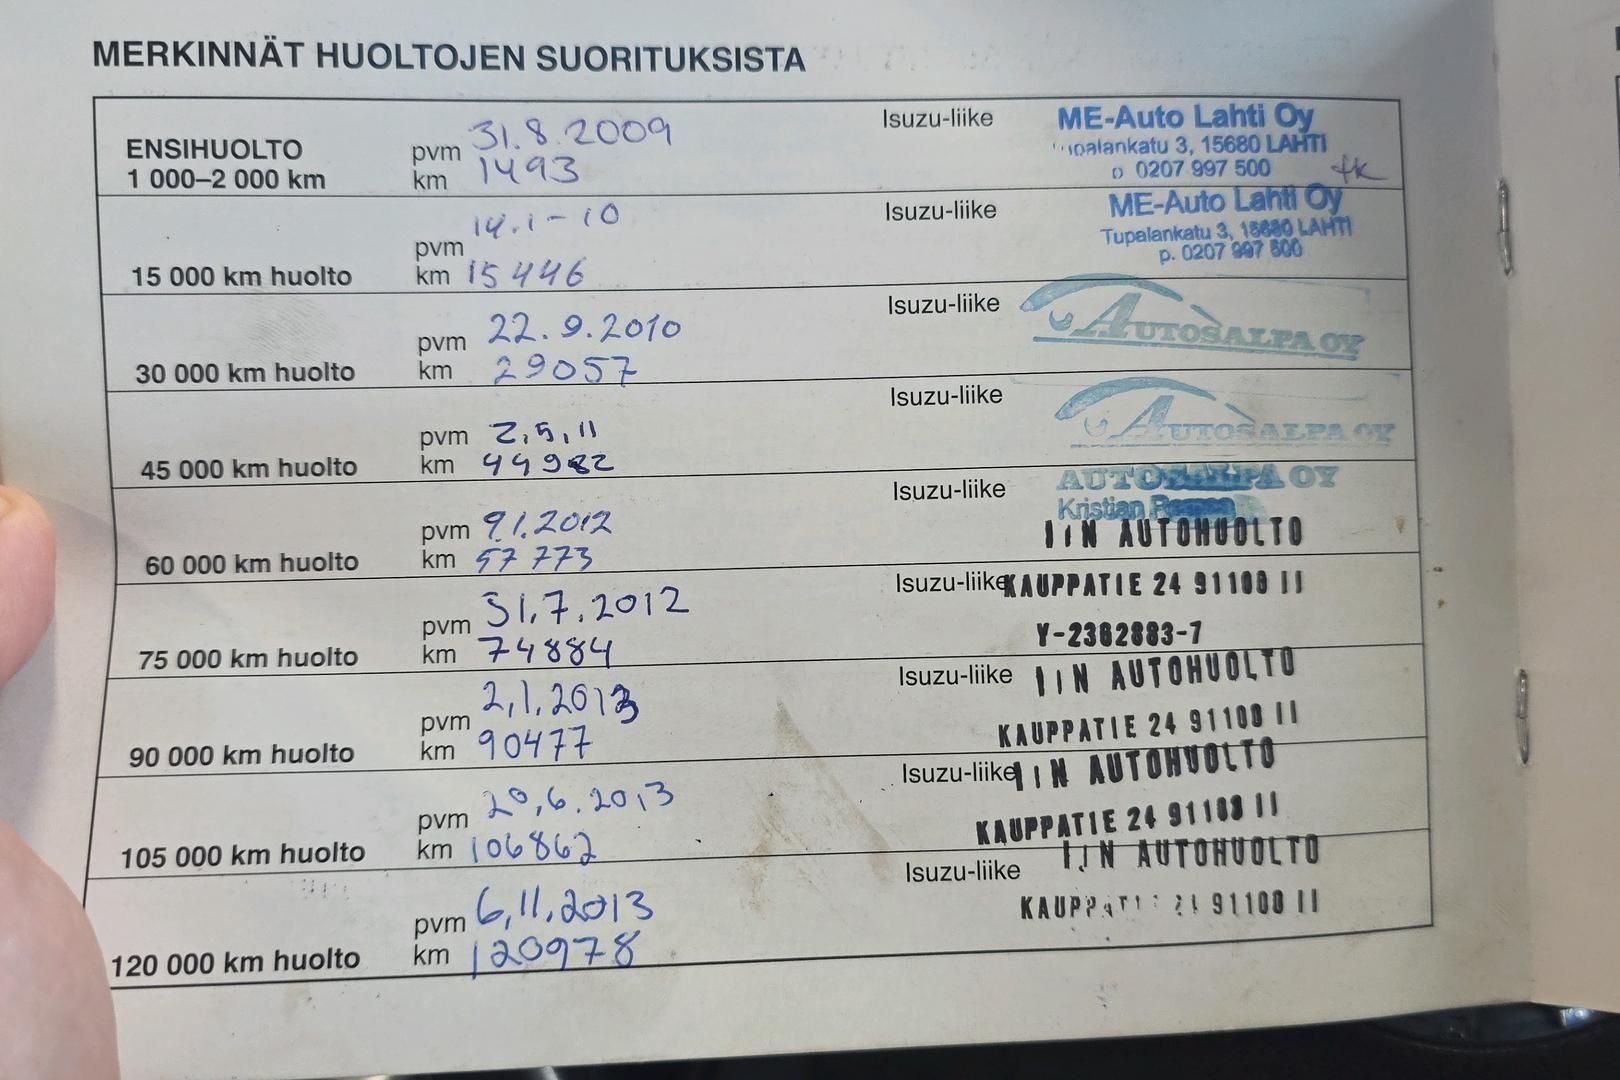 MERKINNÄT HUOLTOJEN SUORITUKSISTA
ENSIHUOLTO
1 000–2 000 km
pvm 31.8.2009
km 1493
Isuzu-liike
ME-Auto Lahti Oy
upalankatu 3, 15680 LAHTI
p 0207 997 500
15 000 km huolto
pvm 14.1-10
km 15446
Isuzu-liike
ME-Auto Lahti Oy
Tupalankatu 3, 15680 LAHTI
p. 0207 997 500
30 000 km huolto
pvm 22.9.2010
km 29057
Isuzu-liike
AUTOSALPA OY
45 000 km huolto
pvm 2,5,11
km 44982
Isuzu-liike
AUTOSALPA OY
60 000 km huolto
pvm 9.1.2012
km 57 773
Isuzu-liike
AUTOSALPA OY
Kristian
75 000 km huolto
pvm 31.7.2012
km 74884
Isuzu-liike
IIN AUTOHUOLTO
KAUPPATIE 24 91100 II
Y-2362883-7
90 000 km huolto
pvm 2,1,2013
km 90477
Isuzu-liike
IIN AUTOHUOLTO
KAUPPATIE 24 91100 II
105 000 km huolto
pvm 20,6.2013
km 106862
Isuzu-liike
IIN AUTOHUOLTO
KAUPPATIE 24 91100 II
120 000 km huolto
pvm 6,11,2013
km 120978
Isuzu-liike
IIN AUTOHUOLTO
KAUPPATIE 24 91100 II